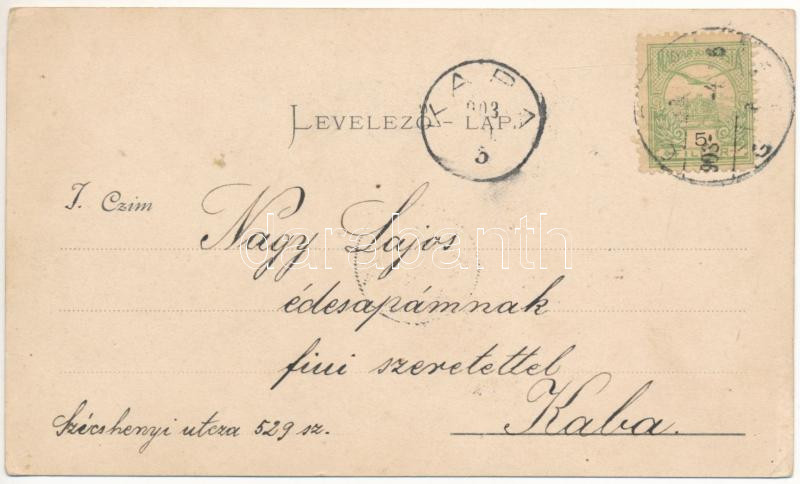 LEVELEZŐ-LAP.
KABA
903
5
MAGYAR KIR. POSTA
903
5
T. Czim
Nagy Lajos
darabanth
édesapámnak
fiui szeretettel
Kaba.
Szécshenyi utcza 529 sz.